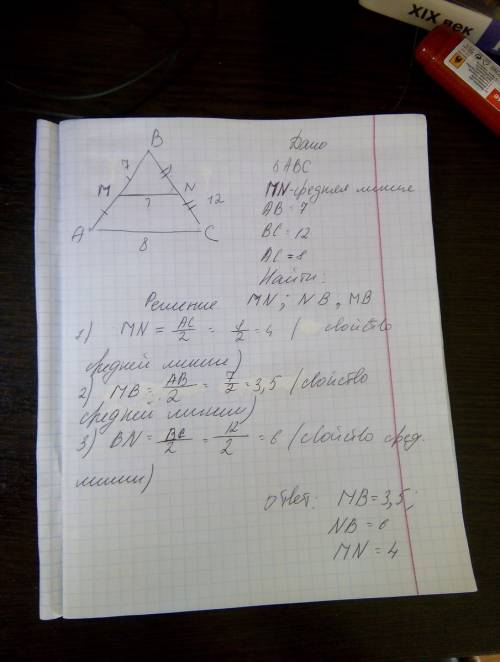 XIX век
B
7
M
N
?
12
A
8
C
Дано
ΔABC
MN-средняя линия
AB=7
BC=12
AC=8
Найти:
MN; NB, MB
Решение
1) MN = AC/2 = 8/2 = 4 (свойство
средней линии)
2) MB = AB/2 = 7/2 = 3,5 (свойство
средней линии)
3) BN = BC/2 = 12/2 = 6 (свойство сред.
линии)
ответ: MB=3,5;
NB=6
MN=4